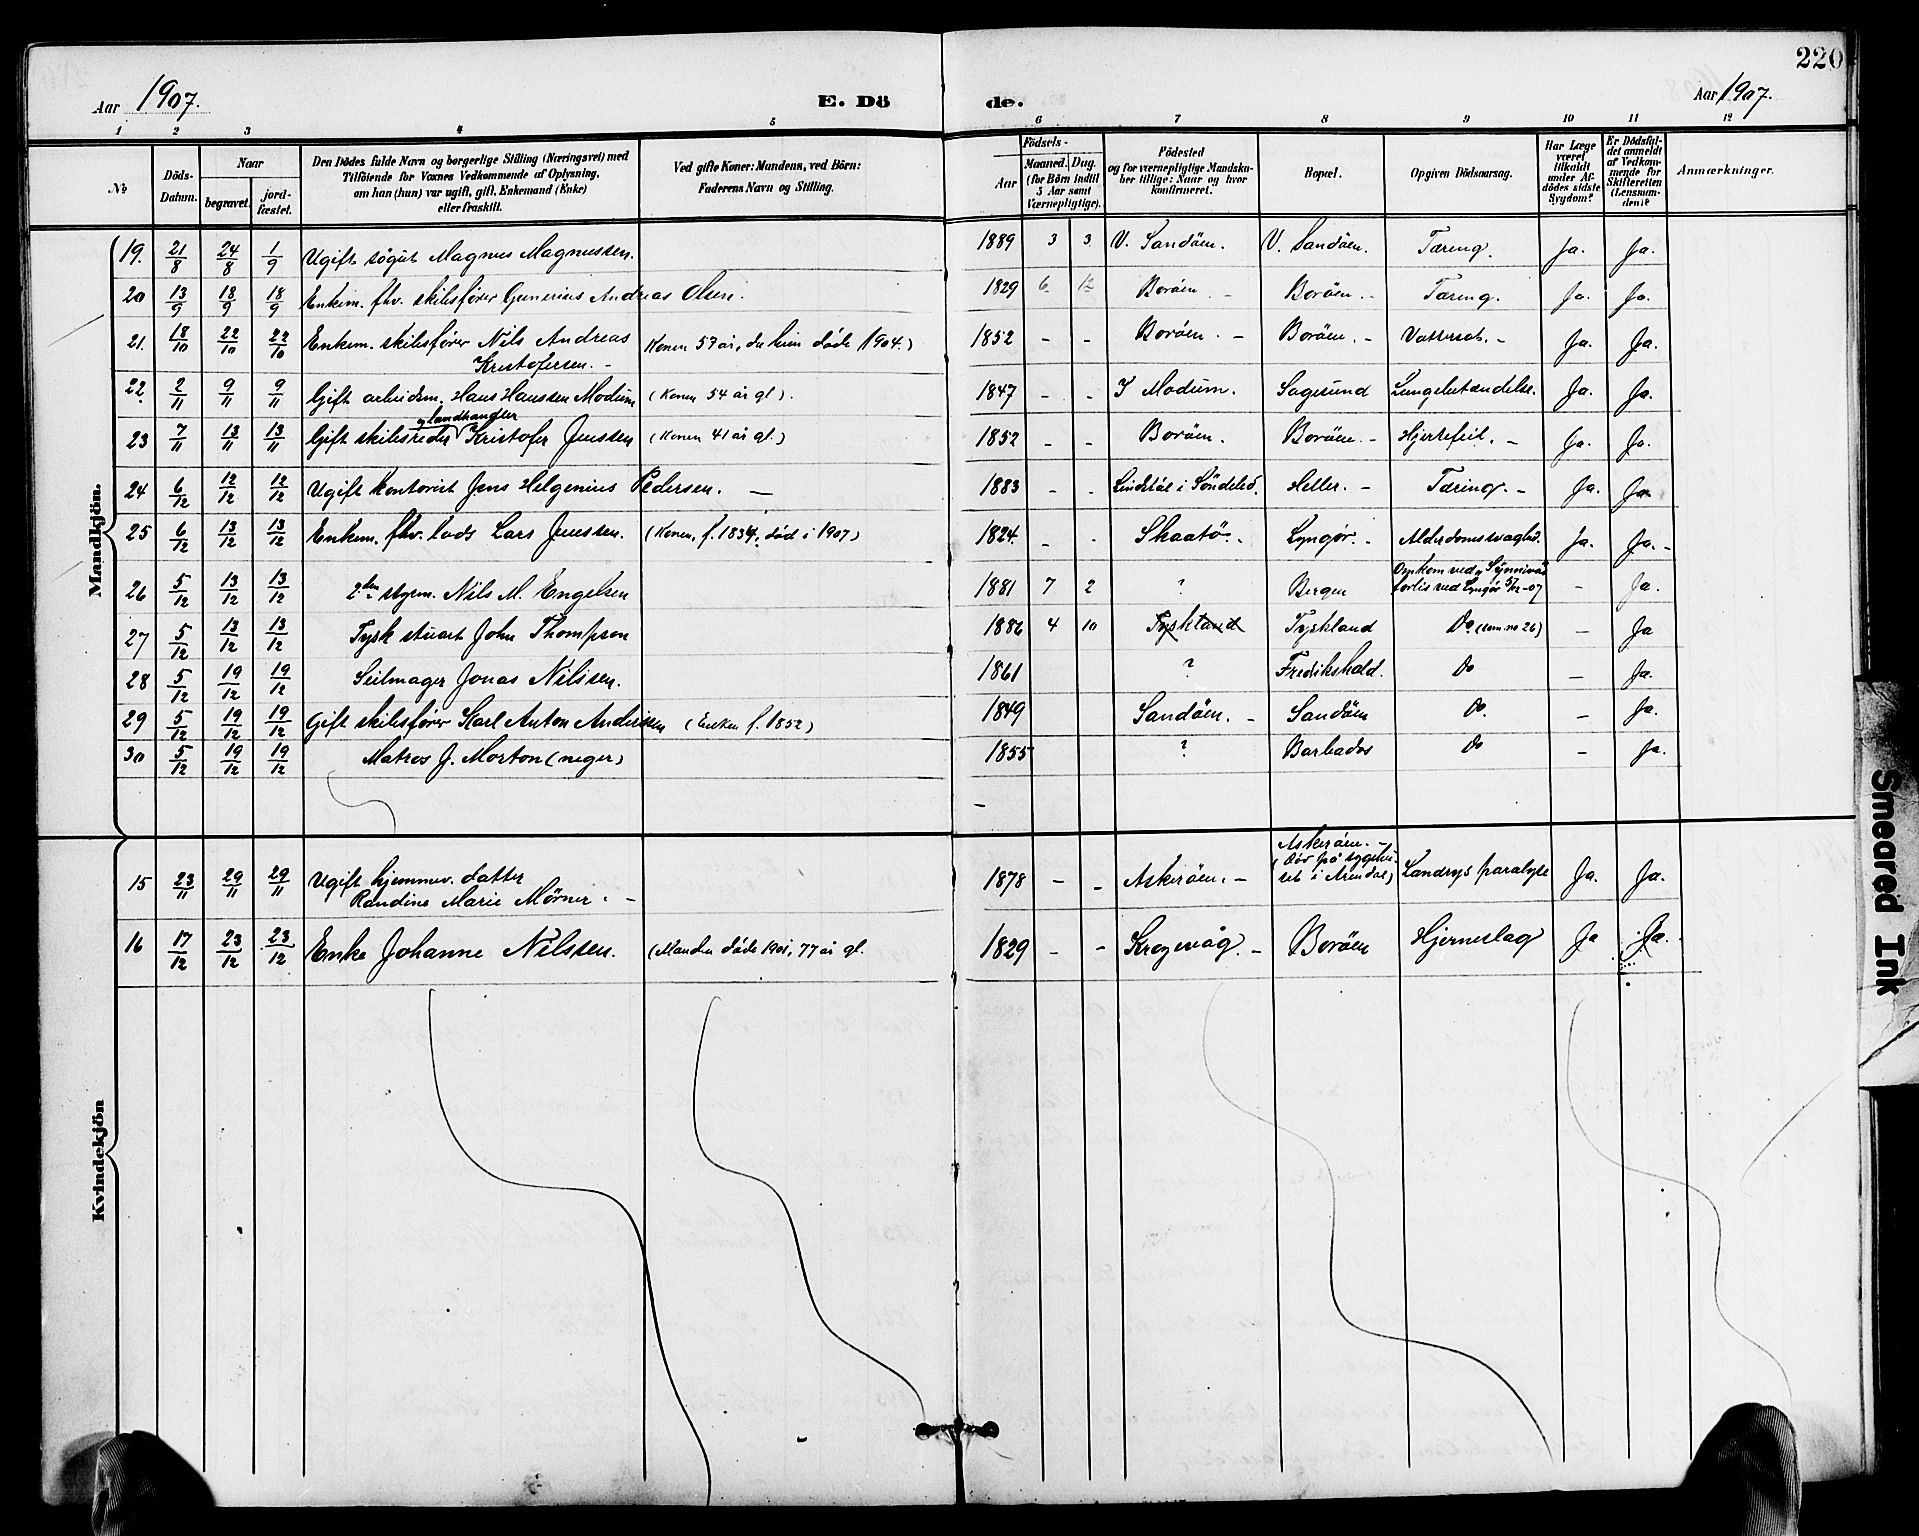 220
Aar 1907. E. Dö de. Aar 1907.
1 2 3 4 5 6 7 8 9 10 11 12
No
Döds-Datum.
Naar
begravet.
jord-fæstet.
Den Dödes fulde Navn og borgerlige Stilling (Næringsvei) med
Tilföiende for Voxnes Vedkommende af Oplysning,
om han (hun) var ugift, gift, Enkemand (Enke)
eller fraskilt.
Ved gifte Koner: Mandens, ved Börn:
Faderens Navn og Stilling.
Födsels-
Aar
Maaned. Dag.
(for Börn indtil
5 Aar samt
Værnepligtige).
Födested
og for værnepligtige Mandska-
ber tillige: Naar og hvor
konfirmeret.
Bopæl.
Opgiven Dödsaarsag.
Har Læge
været
tilkaldt
under Af-
dödes sidste
Sygdom?
Er Dödsfal-
det anmeldt
af Vedkom-
mende for
Skifteretten
(Lensman-
den)?
Anmærkninger.
Mandkjön.
19. 21/8 24/8 1/9 Ugift søgut Magnus Magnussen. 1889 3 3 V. Sandöen. V. Sandöen. Tæring. Ja. Ja.
20 13/9 18/9 18/9 Enkem. fhv. skibsfører Gunerius Andreas Olsen. 1829 6 12 Boröen. - Boröen. - Tæring. Ja. Ja.
21. 18/10 22/10 22/10 Enkem. skibsfører Nils Andreas Konen 57 år, da hun døde 1904.) 1852 - - Boröen. - Boröen. - Vattersot. - Ja. Ja.
Kristofersen. -
22. 2/11 9/11 9/11 Gift arbeidsm. Hans Hanssen Modum (Konen 54 år gl). 1847 - - I Modum. Sagesund Lungebetændelse. Ja. Ja.
og landhandler
23 7/11 13/11 13/11 Gift skibsreder Kristofer Jenssen (Konen 41 år gl.) 1852 - - Boröen. Boröen. - Hjertefeil. - Ja. Ja.
24 6/12 12/12 12/12 Ugift kontorist Jens Helgenius Pedersen. - 1883 - - Lindstöl i Söndeled. Heller. - Tæring. - Ja. Ja.
25 6/12 13/12 13/12 Enkem. fhv. lods Lars Jenssen. (Konen, f. 1834, död i 1907) 1824. - - Skaatö. - Lyngør. - Alderdomssvaghed. Ja. Ja. -
26 5/12 13/12 13/12 2den styrm. Nils M. Engelsen 1881 7 2 ? Bergen Omkom ved „Synnivas
forlis ved Lyngør 5/12-07 - Ja.
27 5/12 13/12 13/12 Tysk stuart John Thompson 1886 4 10 Tyskland Tyskland Do (som no 26) - Ja
28 5/12 19/12 19/12 Seilmager Jonas Nilssen. 1861 ? Fredrikshald. Do - Ja.
29 5/12 19/12 19/12 Gift skibsfører Karl Anton Anderssen (Enken f. 1852) 1849 Sandöen. - Sandöen Do. - Ja.
30 5/12 19/12 19/12 Matros J. Morton (neger) 1855 ? Barbados Do - Ja.
Kvindekjön
15 23/11 29/11 29/11 Ugift hjemmev. datter
Randine Marie Mörner. - 1878 - - Askeröen. - Askeröen. -
(död på sygehu-
set i Arendal) Landrys paralyse Ja. Ja.
16 17/12 23/12 23/12 Enke Johanne Nilssen. (Manden døde 1901, 77 år gl. 1829 - - Krogevåg. - Boröen Hjerneslag Ja Ja.
Smeared Ink